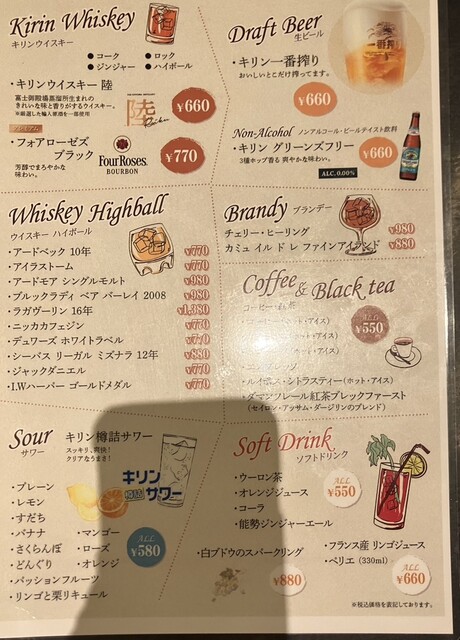 Kirin Whiskey
キリンウイスキー
●コーク ●ロック
●ジンジャー ●ハイボール
・キリンウイスキー 陸
富士御殿場蒸溜所生まれの
きれいな味と香りがするウイスキー。
※厳選した輸入原酒を一部使用
陸
¥660
・フォアローゼズ
ブラック
芳醇でまろやかな
味わい。
Four Roses
BOURBON
¥770
Draft Beer
生ビール
・キリン一番搾り
おいしいとこだけ搾ってます。
¥660
Non-Alcohol ノンアルコール・ビールテイスト飲料
・キリン グリーンズフリー
3種ホップ香る 爽やかな味わい。
ALC.0.00%
¥660
Whiskey Highball
ウイスキー ハイボール
・アードベック 10年 ¥770
・アイラストーム ¥770
・アードモア シングルモルト ¥980
・ブルックラディ ベア バーレイ 2008 ¥980
・ラガヴーリン 16年 ¥1,380
・ニッカカフェジン ¥770
・デュワーズ ホワイトラベル ¥770
・シーバス リーガル ミズナラ 12年 ¥880
・ジャックダニエル ¥770
・I.Wハーパー ゴールドメダル ¥770
Brandy ブランデー
チェリー・ヒーリング ¥980
カミュ イル ド レ ファインアイランド ¥880
Coffee & Black tea
ALL
¥550
・ルイボス・シトラスティー(ホット・アイス)
・ダマンフレール紅茶ブレックファースト
(セイロン・アッサム・ダージリンのブレンド)
Sour キリン樽詰サワー
サワー スッキリ、爽快!
クリアなうまさ!
キリン
樽詰
サワー
・プレーン
・レモン
・すだち
・バナナ ・マンゴー
・さくらんぼ ・ローズ
・どんぐり ・オレンジ
・パッションフルーツ
・リンゴと栗リキュール
ALL
¥580
Soft Drink
ソフトドリンク
・ウーロン茶
・オレンジジュース
・コーラ
・能勢ジンジャーエール
ALL
¥550
・白ブドウのスパークリング
¥880
・フランス産 リンゴジュース
・ペリエ (330ml)
ALL
¥660
※税込価格を表記しております。